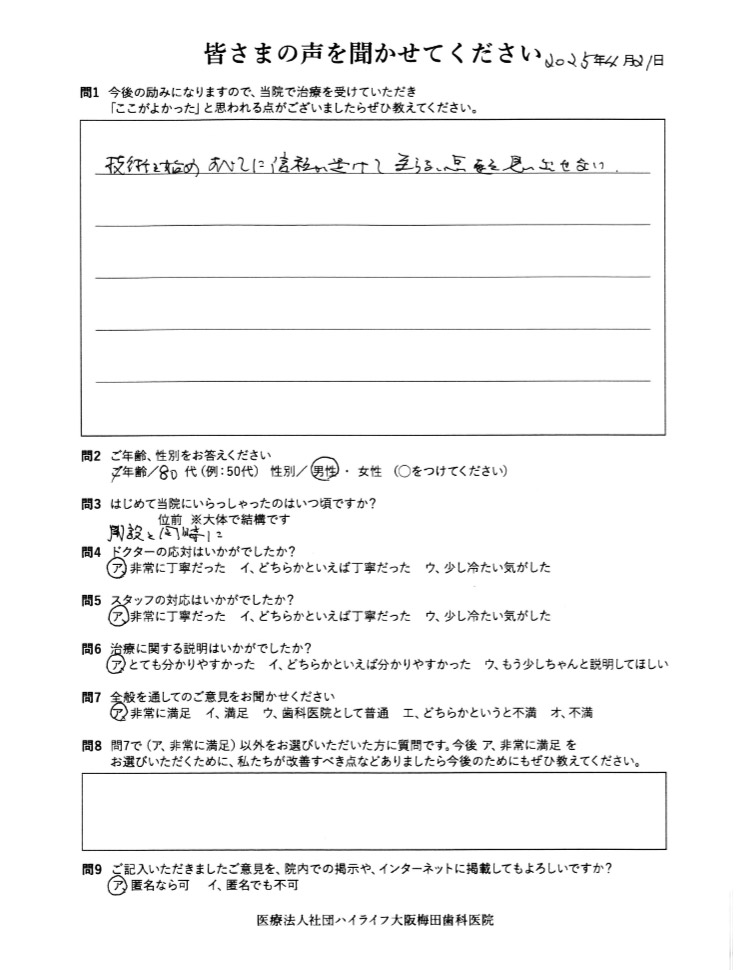 皆さまの声を聞かせてください 2025年4月21日
問1 今後の励みになりますので、当院で治療を受けていただき
「ここがよかった」と思われる点がございましたらぜひ教えてください。
技術を始め、すべてに信頼が
問2 ご年齢、性別をお答えください
ご年齢/80代(例:50代) 性別/男性・女性 (○をつけてください)
問3 はじめて当院にいらっしゃったのはいつ頃ですか?
位前 ※大体で結構です
開設と同時に
問4 ドクターの応対はいかがでしたか?
ア、非常に丁寧だった イ、どちらかといえば丁寧だった ウ、少し冷たい気がした
問5 スタッフの対応はいかがでしたか?
ア、非常に丁寧だった イ、どちらかといえば丁寧だった ウ、少し冷たい気がした
問6 治療に関する説明はいかがでしたか?
ア、とても分かりやすかった イ、どちらかといえば分かりやすかった ウ、もう少しちゃんと説明してほしい
問7 全般を通してのご意見をお聞かせください
ア、非常に満足 イ、満足 ウ、歯科医院として普通 エ、どちらかというと不満 オ、不満
問8 問7で(ア、非常に満足)以外をお選びいただいた方に質問です。今後 ア、非常に満足 を
お選びいただくために、私たちが改善すべき点などありましたら今後のためにもぜひ教えてください。
問9 ご記入いただきましたご意見を、院内での掲示や、インターネットに掲載してもよろしいですか?
ア、匿名なら可 イ、匿名でも不可
医療法人社団ハイライフ大阪梅田歯科医院